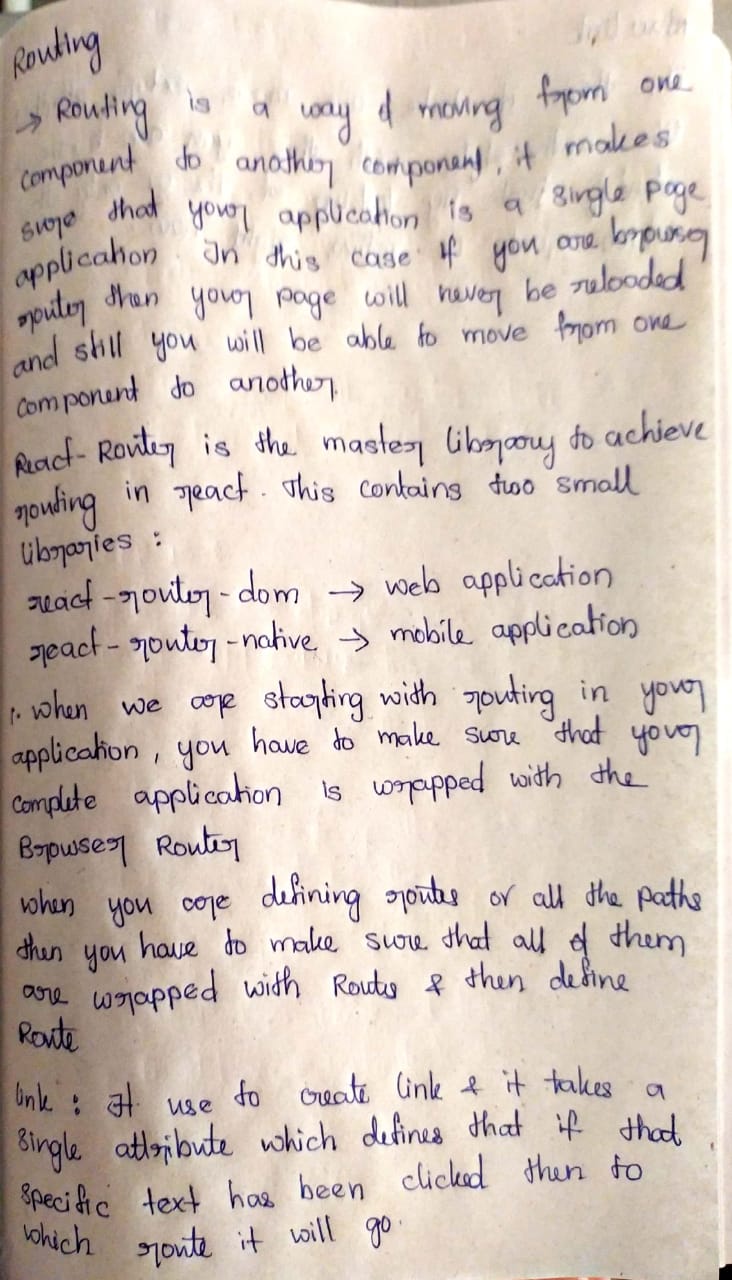 Routing
→ Routing is a way of moving from one
component to another component, it makes
sure that your application is a single page
application. In this case if you are browser
router then your page will never be reloaded
and still you will be able to move from one
component to another.
React-Router is the master library to achieve
routing in react. This contains two small
libraries :
react-router-dom → web application
react-router-native → mobile application
1. when we are starting with routing in your
application, you have to make sure that your
complete application is wrapped with the
Browser Router
when you are defining routes or all the paths
then you have to make sure that all of them
are wrapped with Routes & then define
Route
link : It use to create link & it takes a
single attribute which defines that if that
specific text has been clicked then to
which route it will go.